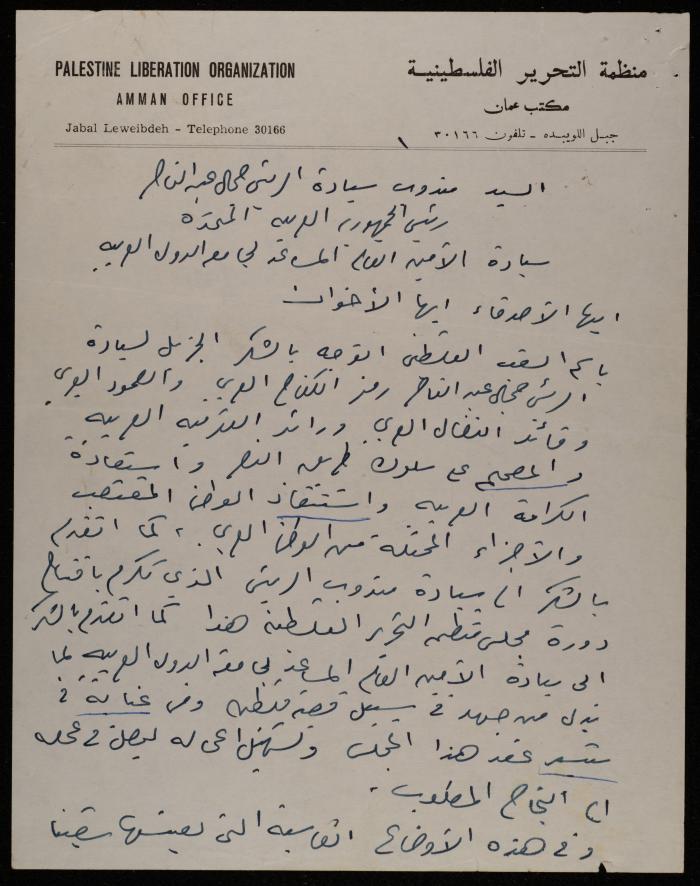 PALESTINE LIBERATION ORGANIZATION
AMMAN OFFICE
Jabal Leweibdeh - Telephone 30166
منظمة التحرير الفلسطينية
مكتب عمان
جبل اللويبده - تلفون ٣٠١٦٦
السيد مندوب سيادة الرئيس جمال عبد الناصر
رئيس الجمهورية العربية المتحدة
سيادة الأمين العام المساعد لجامعة الدول العربية
ايها الأصدقاء ايها الأخوان
باسم الشعب الفلسطيني اتوجه بالشكر الجزيل لسيادة
الرئيس جمال عبد الناصر رمز الكفاح العربي والصمود العربي
وقائد النضال العربي ورائد القومية العربية
والمصمم على سلوك طريق النصر واستعادة
الكرامة العربية واستنقاذ الوطن المغتصب
والأجزاء المحتلة من الوطن العربي ، كما اتقدم
بالشكر الى سيادة مندوب الرئيس الذي تكرم بافتتاح
دورة مجلس منظمة التحرير الفلسطينية هذا كما اتقدم بالشكر
الى سيادة الأمين العام المساعد لجامعة الدول العربية لما
بذل من جهد في سبيل قضية فلسطين ومن عناية في
تيسير عقد هذا المجلس وتسهيل اعماله ليصل في عمله
الى النجاح المطلوب .
وفي هذه الأوضاع القاسية التي يعيشها شعبنا